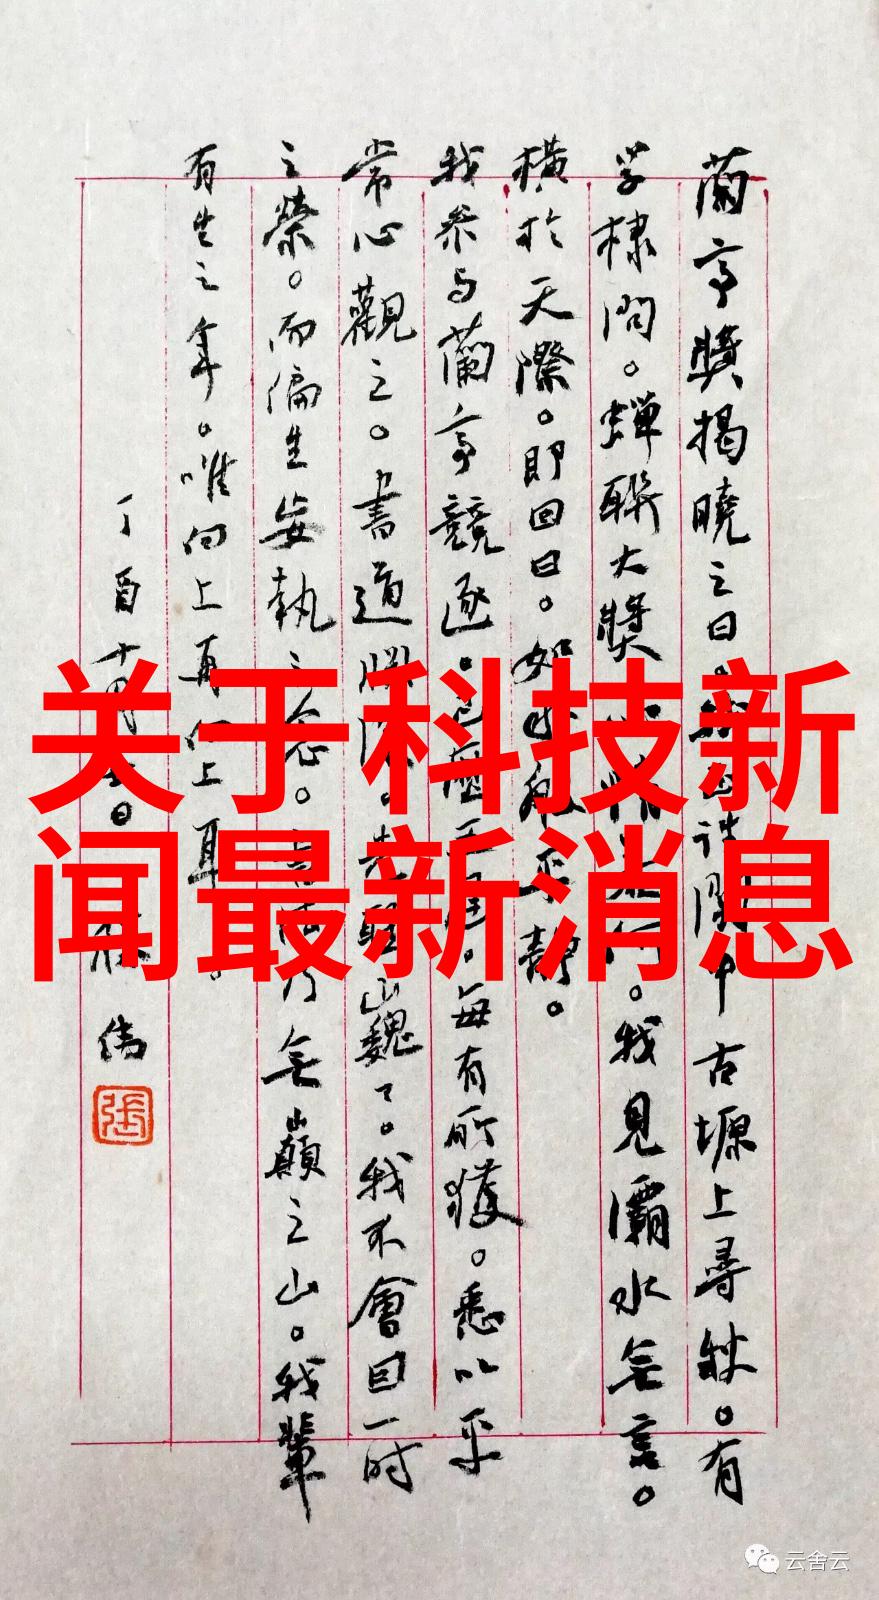 蘭亭獎揭曉之日。
古塬上尋秋。有
学棣問。蟬聯大獎
。我見灞水無言。
橫於天際。即回曰。如水
平靜。
我参与蘭亭競逐。
。每有所獲。悉以平
常心觀之。書道
巍了。我不會因一时
之榮。而偏生妄執之念。
無巔之山。我輩
有生之年。唯向上再向上耳。
丁酉十
偉
張
关于科技新
闻最新消息
云舍云